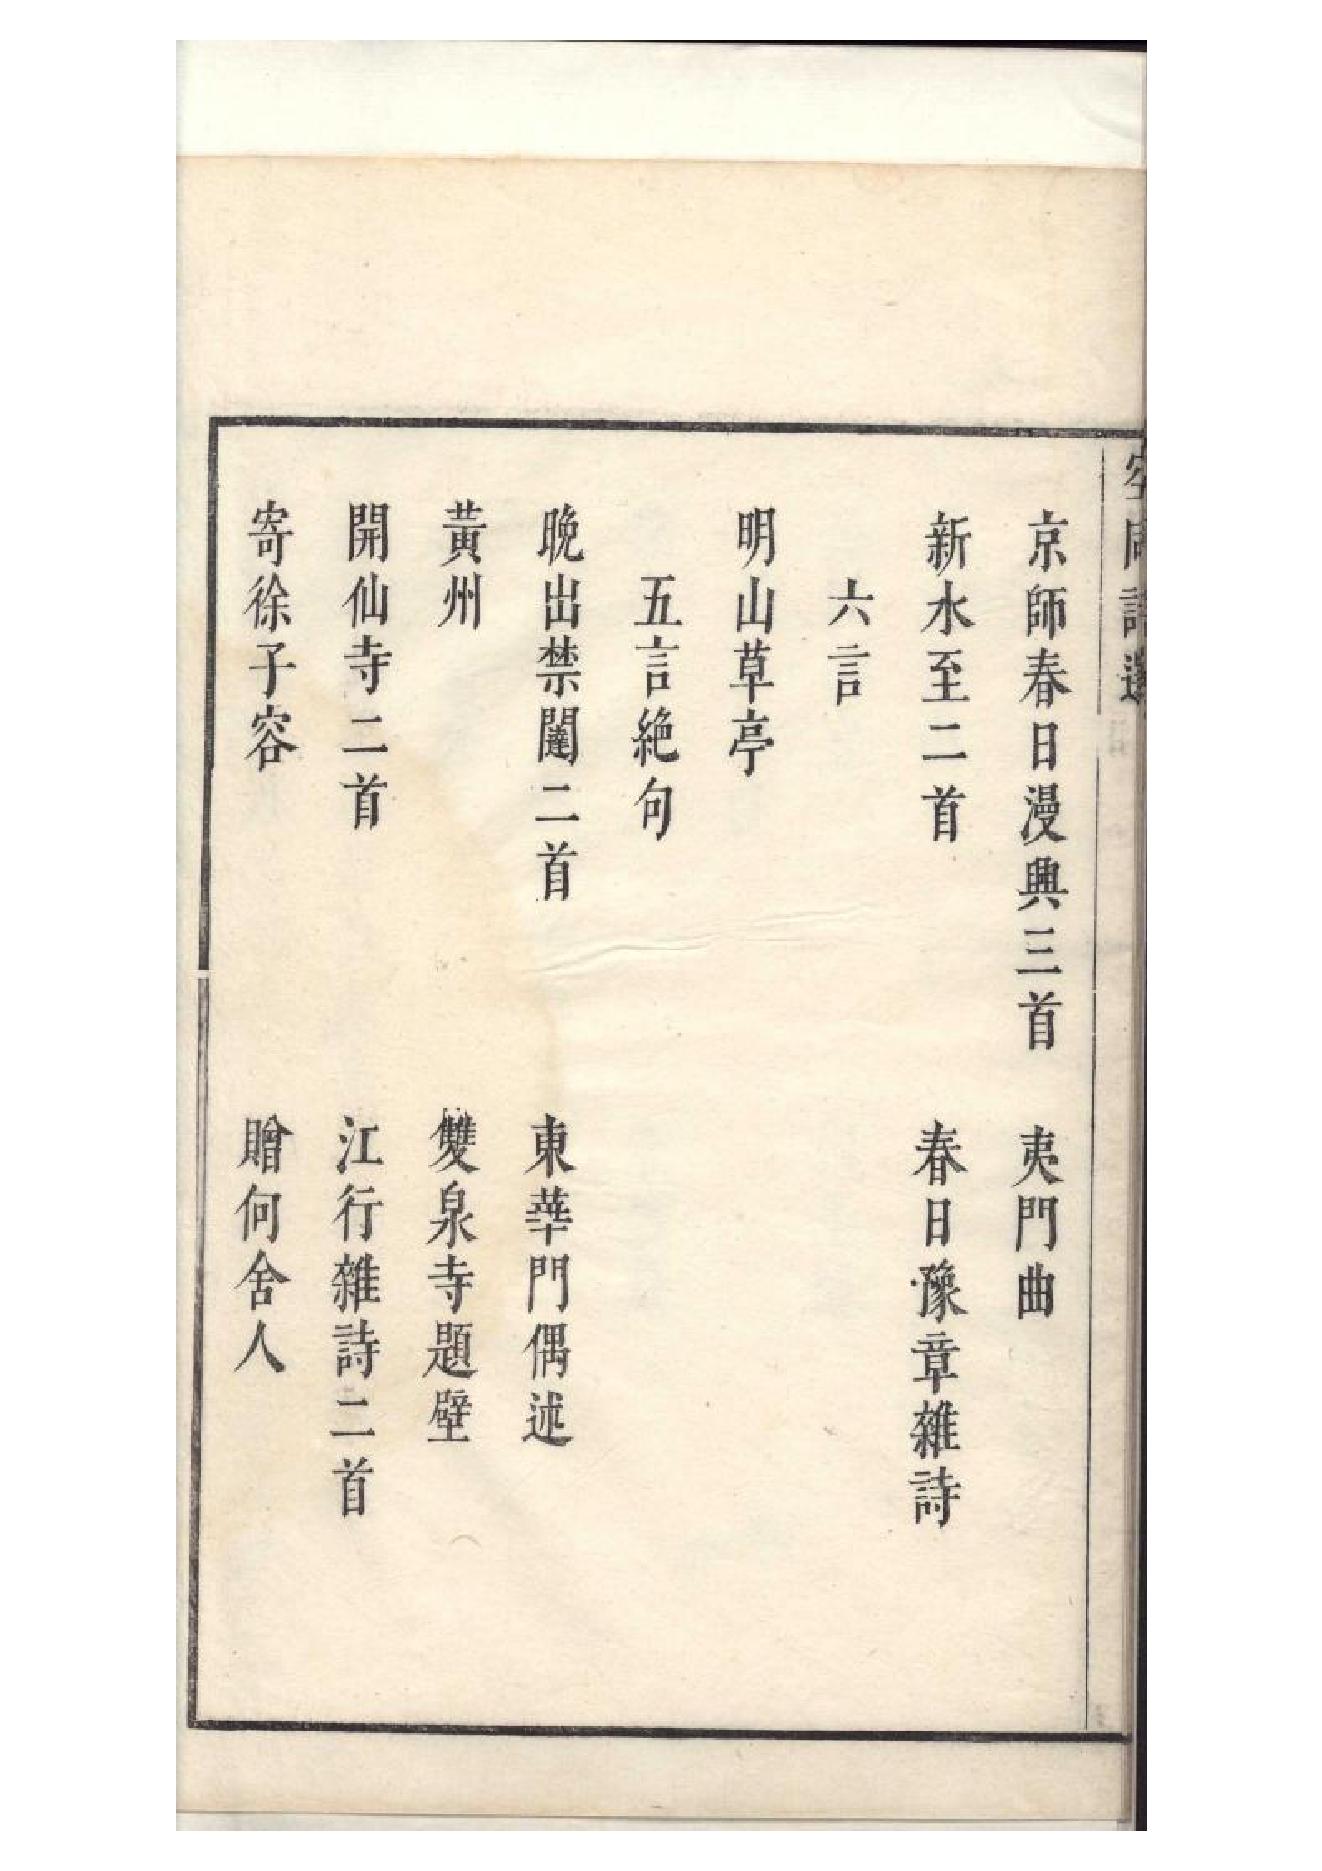 空同詩選
京師春日漫興三首　夷門曲
新水至二首　春日豫章雜詩
六言
明山草亭
五言絶句
晚出禁闥二首　東華門偶述
黃州　雙泉寺題壁
開仙寺二首　江行雜詩二首
寄徐子容　贈何舍人